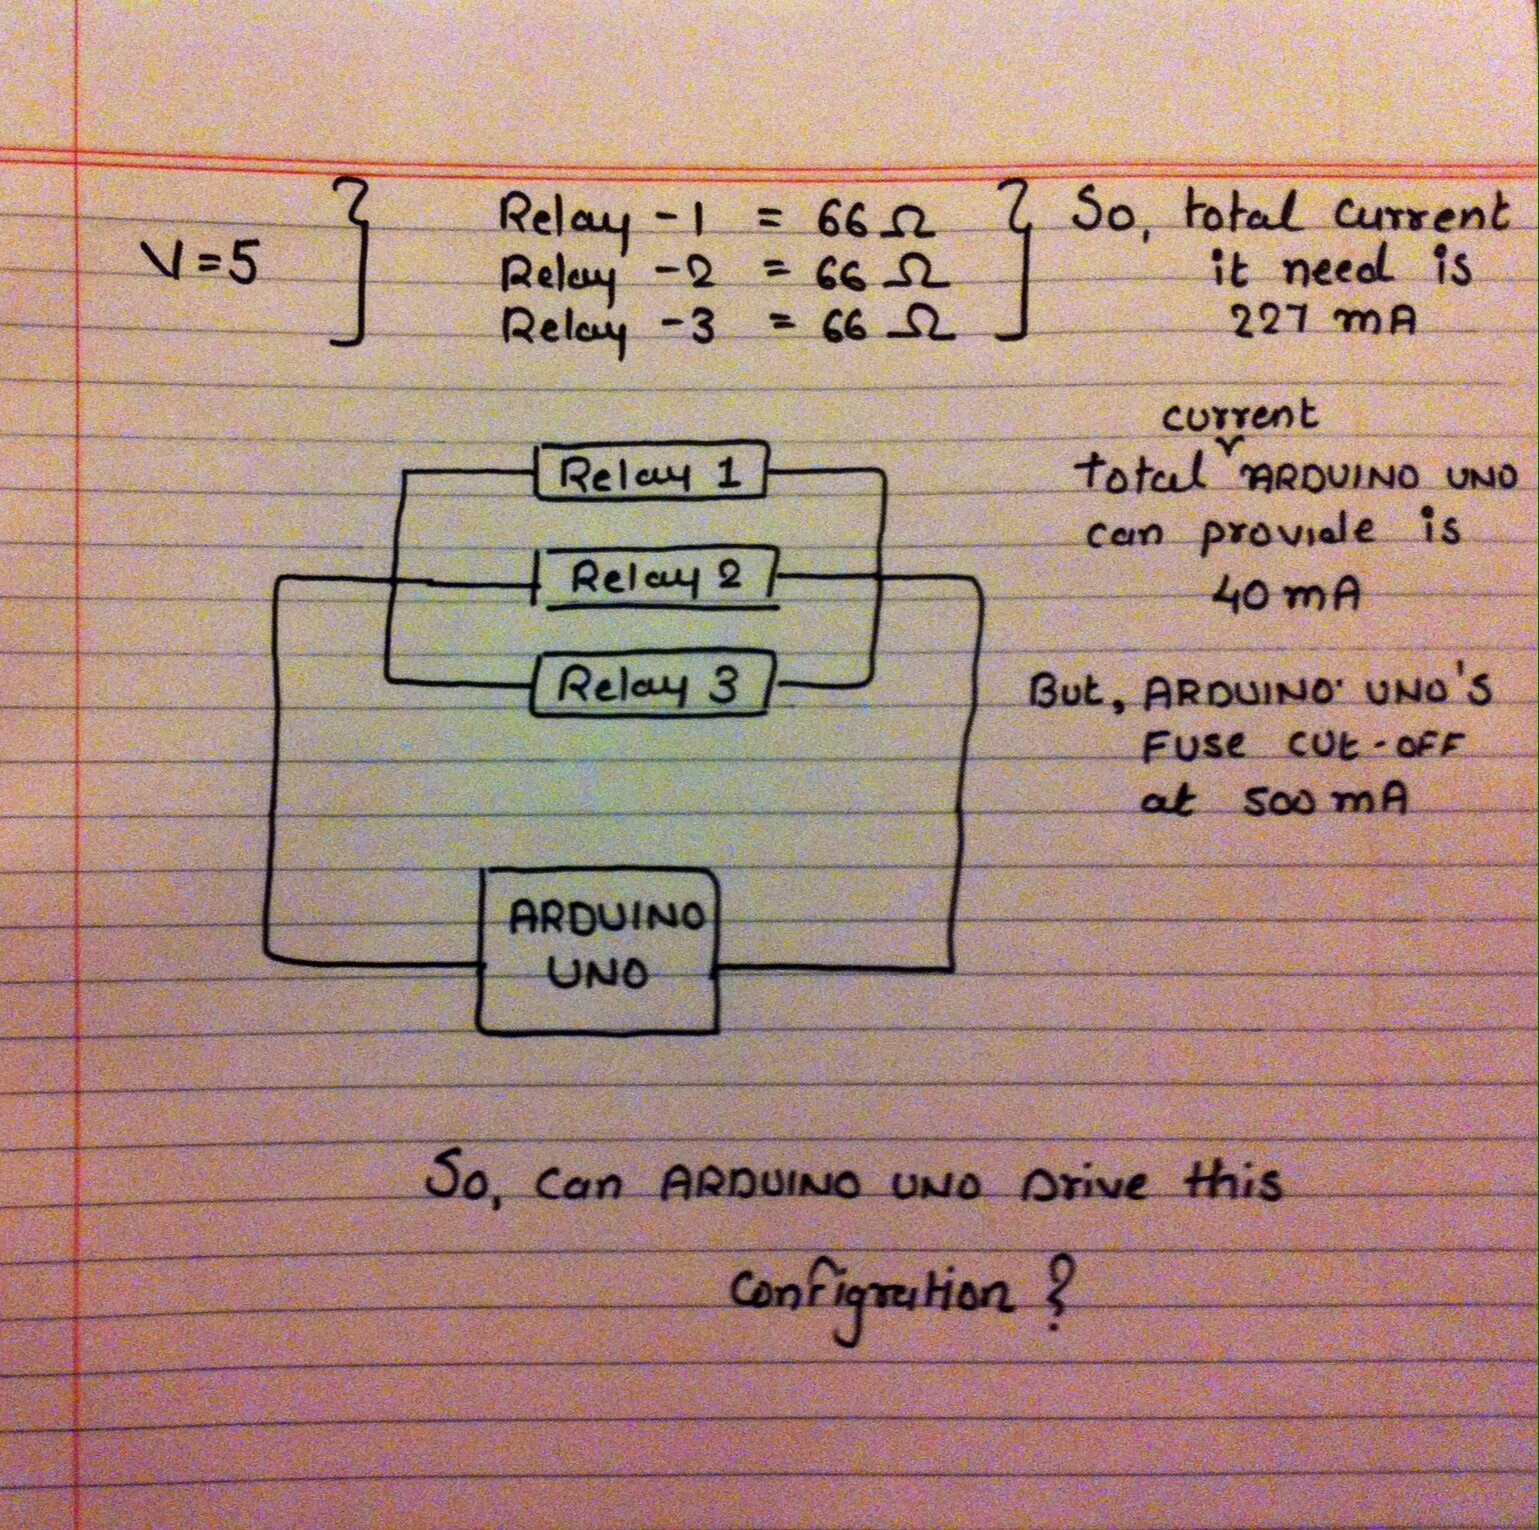 V=5
Relay - 1 = 66 Ω
Relay - 2 = 66 Ω
Relay - 3 = 66 Ω
So, total current
it need is
227 mA
current
total ARDUINO UNO
can provide is
40 mA
But, ARDUINO UNO'S
FUSE CUt-OFF
at 500 mA
Relay 1
Relay 2
Relay 3
ARDUINO
UNO
So, Can ARDUINO UNO Drive this
Configration ?